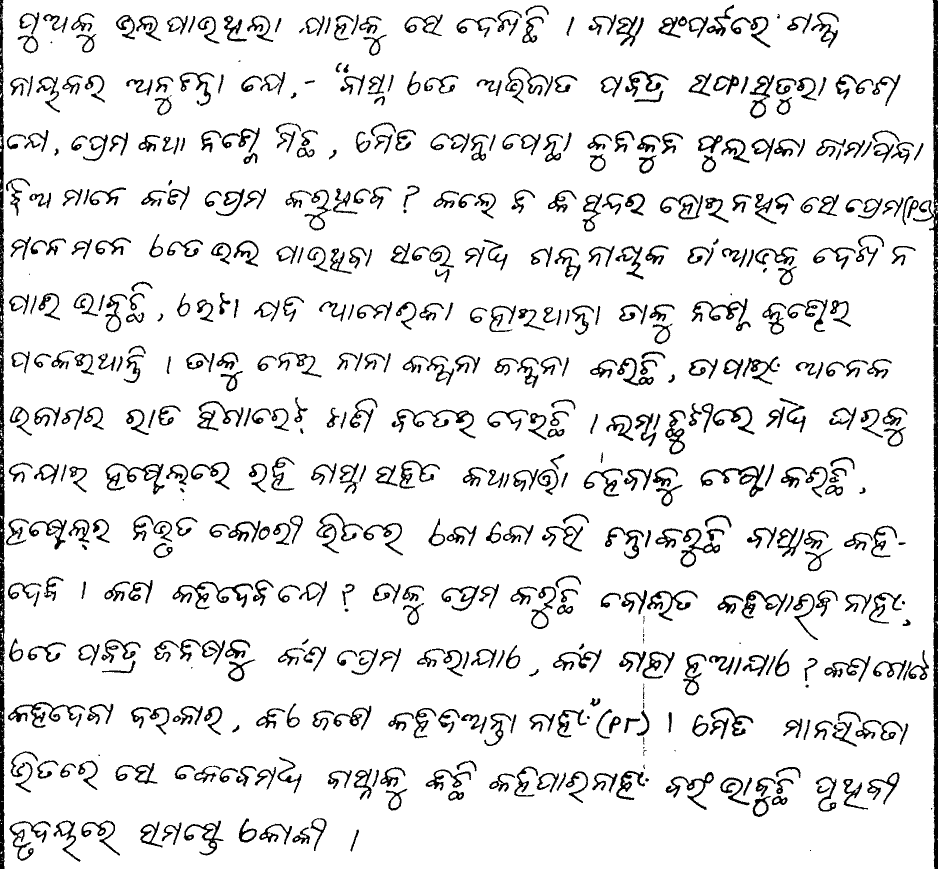 ପୁଅକୁ ଭଲ ପାଉଥିଲା ଯାହାକୁ ସେ ଦେଖିଛି । ବାସ୍ନା ସଂପର୍କରେ ଗଳ୍ପ
ନାୟକର ଅନୁଚିନ୍ତା ଯେ, - "ବାସ୍ନା ଏତେ ଅଭିଜାତ ପବିତ୍ର ସଫାସୁତୁରା ଦିଶେ
ଯେ, ପ୍ରେମ କଥା ନିଶ୍ଚେ ମିଛ, ଏମିତି ପେନ୍ଥା ପେନ୍ଥା କୁନିକୁନି ଫୁଲପକା ଜାମାପିନ୍ଧା
ଝିଅ ମାନେ କଣ ପ୍ରେମ କରୁଥିବେ ? କଲେ ବି କି ସୁନ୍ଦର ହୋଇନଥିବ ସେ ପ୍ରେମ
ମନେ ମନେ ଏତେ ଭଲ ପାଉଥିବା ସତ୍ତ୍ୱେ ମଧ୍ୟ ଗଳ୍ପ ନାୟକ ତା ଆଡ଼କୁ ଦେଖି ନ
ପାରି ଭାବୁଛି, ଏଇଟା ଯଦି ଆମେରିକା ହୋଇଥାନ୍ତା ତାକୁ ନିଶ୍ଚେ କୁଣ୍ଢେଇ
ପକେଇଥାନ୍ତି । ତାକୁ ନେଇ ନାନା କଳ୍ପନା ଜଳ୍ପନା କରିଛି, ତା ପାଇଁ ଅନେକ
ଉଜାଗର ରାତି ସିଗାରେଟ୍ ଟାଣି ବିତେଇ ଦେଇଛି । ଲମ୍ବା ଛୁଟୀରେ ମଧ୍ୟ ଘରକୁ
ନଯାଇ ହଷ୍ଟେଲ୍‌ରେ ରହି ବାସ୍ନା ସହିତ କଥାବାର୍ତ୍ତା ହେବାକୁ ଚେଷ୍ଟା କରିଛି,
ହଷ୍ଟେଲ୍‌ର ନିଭୃତ କୋଠରୀ ଭିତରେ ଏକା ଏକା ବସି ଚିନ୍ତାକରୁଛି ବାସ୍ନାକୁ କହି-
ଦେବି । କଣ କହିଦେବି ଯେ ? ତାକୁ ପ୍ରେମ କରୁଛି ବୋଲିତ କହିପାରିବି ନାହିଁ,
ଏତେ ପବିତ୍ର ଝିନିଷକୁ କଣ ପ୍ରେମ କରାଯାଏ, କଣ ବାହା ହୁଆଯାଏ ? କଣ ଗୋଟେ
କହିଦେବା ଦରକାର, କିଏ ଜଣେ କହିଦିଅନ୍ତା ନାହିଁ" (୧୮) । ଏମିତି ମାନସିକତା
ଭିତରେ ସେ କେବେମଧ୍ୟ ବାସ୍ନାକୁ କିଛି କହିପାରିନାହିଁ ବରଂ ଭାବୁଛି ପୃଥିବୀ
ହୃଦୟରେ ସମସ୍ତେ ଏକାକୀ ।